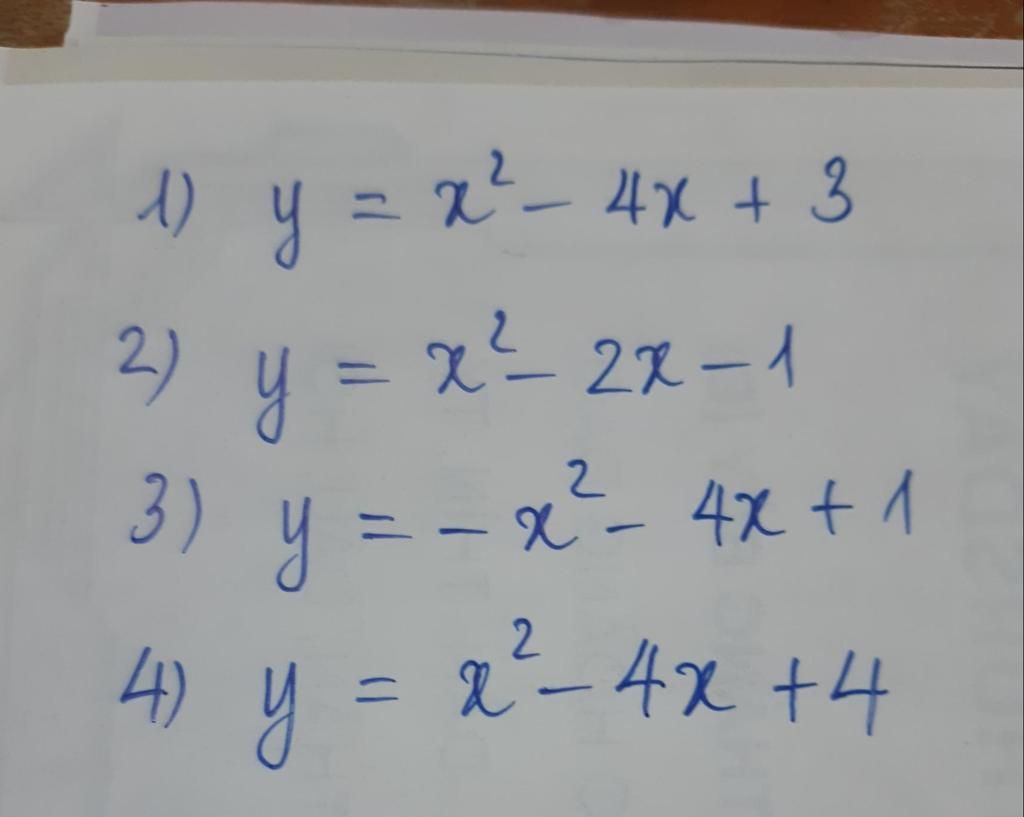 1) y = x² - 4x + 3
2) y = x² - 2x - 1
3) y = - x² - 4x + 1
4) y = x² - 4x + 4